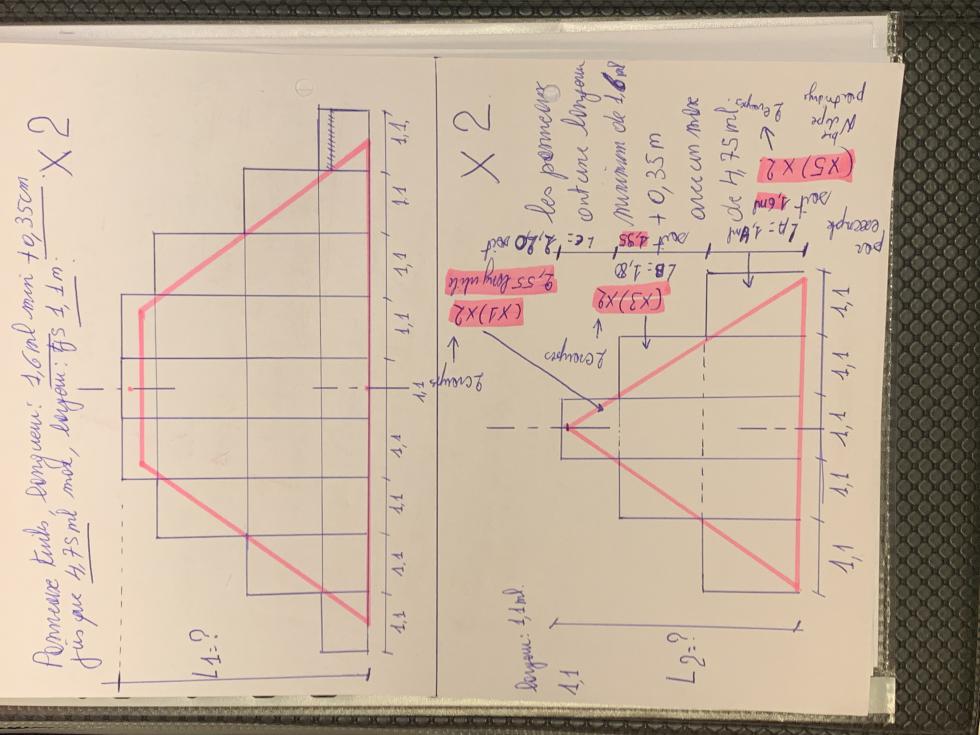 Panneaux tuiles, longueur: 1,6ml mini + 0,35cm
jusque 4,75ml max, largeur: 1,1m:
X 2
L1=?
1,1 1,1 1,1 1,1 1,1 1,1 1,1 1,1 1,1
X 2
les panneaux
ont une longueur
minimum de 1,6ml
+ 0,35m
avec un max
de 4,75ml.
2,20 soit
2,55 long utile
(x1)x2
2 croupes
Lc=
LB=1,80
soit 1,95
(x3)x2
2 croupes
par
exemple
soit 1,6ml
(x5)x2
2 croupes
Nbre
largeur: 1,1ml.
1,1
L2=?
1,1 1,1 1,1 1,1 1,1